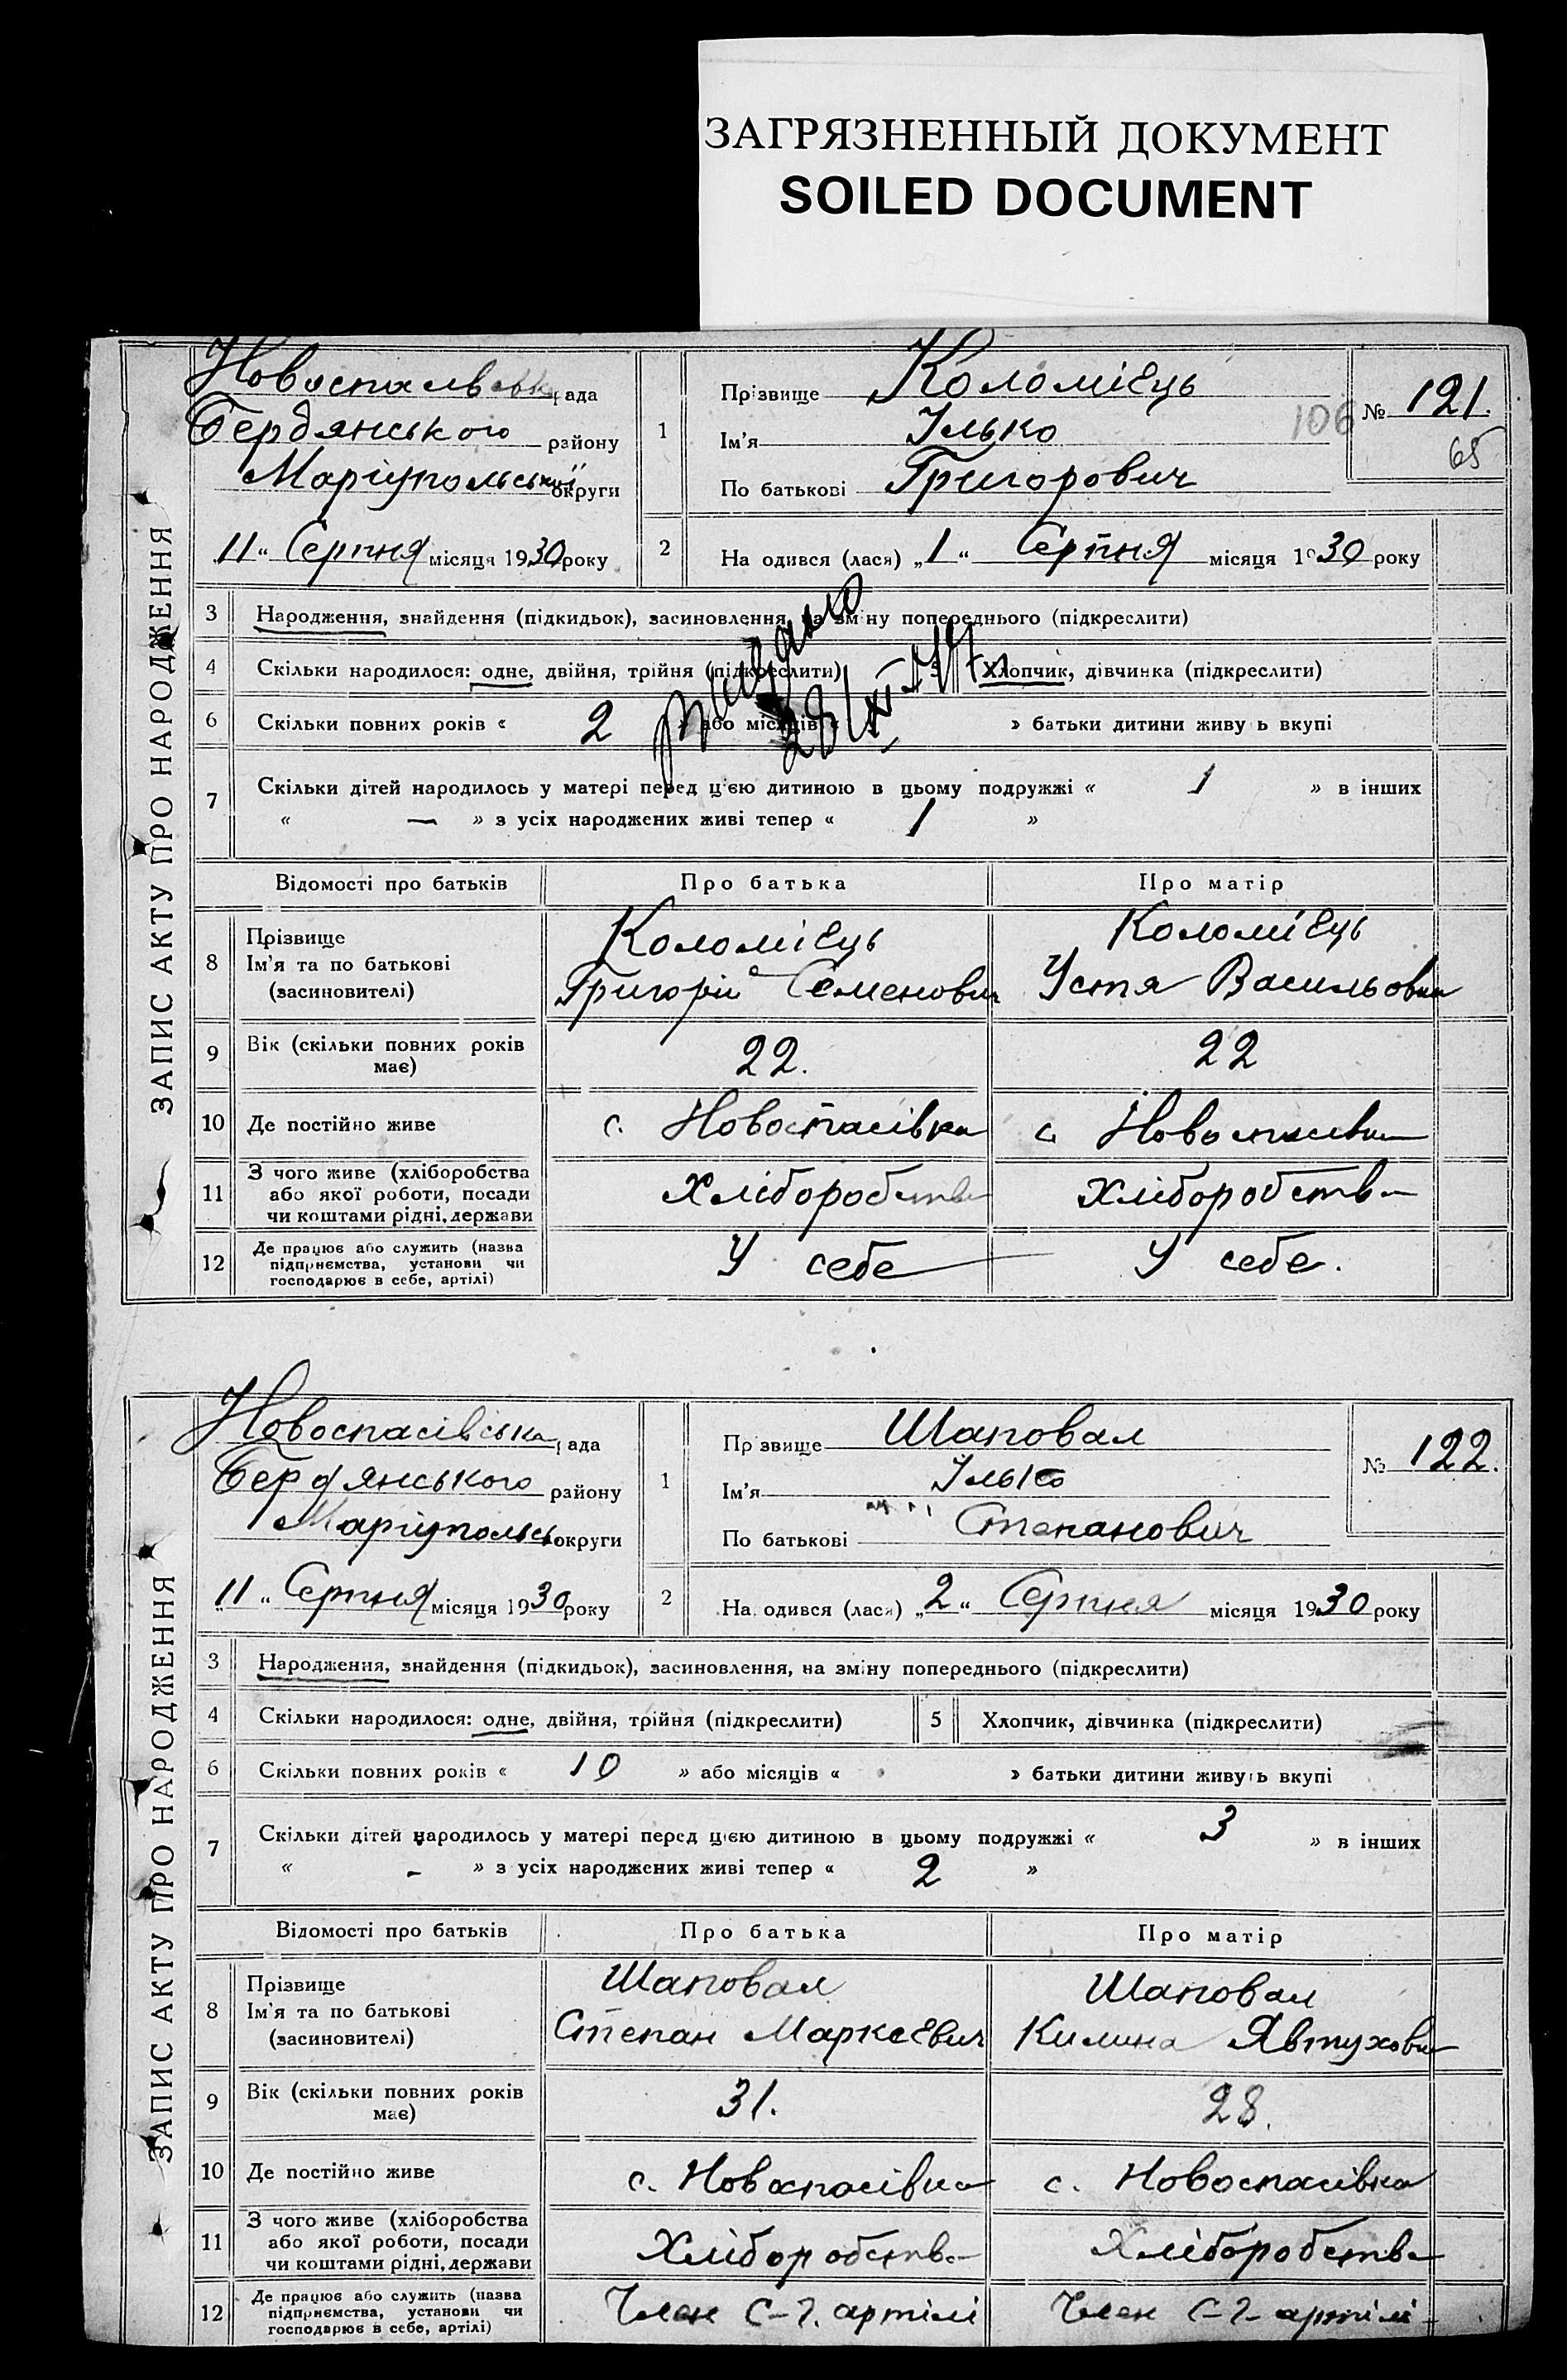 ЗАГРЯЗНЕННЫЙ ДОКУМЕНТ
SOILED DOCUMENT
ЗАПИС АКТУ ПРО НАРОДЖЕННЯ
Новоспасівська рада
Бердянського району
Маріупольської округи
„11“ Серпня місяця 1930 року
1
Прізвище Коломієць
Ім'я Ілько
По батькові Григорович
106
№ 121.
65
2
Народився (лася) „1“ Серпня місяця 1930 року
3 Народження, знайдення (підкидьок), засиновлення, на зміну попереднього (підкреслити)
4 Скільки народилося: одне, двійня, трійня (підкреслити) 5 Хлопчик, дівчинка (підкреслити)
видано
28/XI
6 Скільки повних років « 2 » або місяців « » батьки дитини живуть вкупі
7 Скільки дітей народилось у матері перед цією дитиною в цьому подружжі « 1 » в інших
« — » з усіх народжених живі тепер « 1 »
Відомості про батьків Про батька Про матір
8 Прізвище Коломієць Коломієць
Ім'я та по батькові Григорій Семенович Устя Васильовна
(засиновителі)
9 Вік (скільки повних років має) 22. 22
10 Де постійно живе с. Новоспасівка с. Новоспасівка
11 З чого живе (хліборобства
або якої роботи, посади
чи коштами рідні, держави Хліборобства Хліборобства
12 Де працює або служить (назва
підприємства, установи чи
господарює в себе, артілі) У себе У себе.
ЗАПИС АКТУ ПРО НАРОДЖЕННЯ
Новоспасівська рада
Бердянського району
Маріупольськ округи
„11“ Серпня місяця 1930 року
1
Прізвище Шаповал
Ім'я Ілько
По батькові Степанович
№ 122.
2
Народився (лася) „2“ Серпня місяця 1930 року
3 Народження, знайдення (підкидьок), засиновлення, на зміну попереднього (підкреслити)
4 Скільки народилося: одне, двійня, трійня (підкреслити) 5 Хлопчик, дівчинка (підкреслити)
6 Скільки повних років « 10 » або місяців « » батьки дитини живуть вкупі
7 Скільки дітей народилось у матері перед цією дитиною в цьому подружжі « 3 » в інших
« - » з усіх народжених живі тепер « 2 »
Відомості про батьків Про батька Про матір
8 Прізвище Шаповал Шаповал
Ім'я та по батькові Степан Маркєєвич Килина Явтуховн
(засиновителі)
9 Вік (скільки повних років має) 31. 28.
10 Де постійно живе с. Новоспасівка с. Новоспасівка
11 З чого живе (хліборобства
або якої роботи, посади
чи коштами рідні, держави Хліборобства Хліборобства
12 Де працює або служить (назва
підприємства, установи чи
господарює в себе, артілі) Член С-Г. артілі Член С-Г- артілі